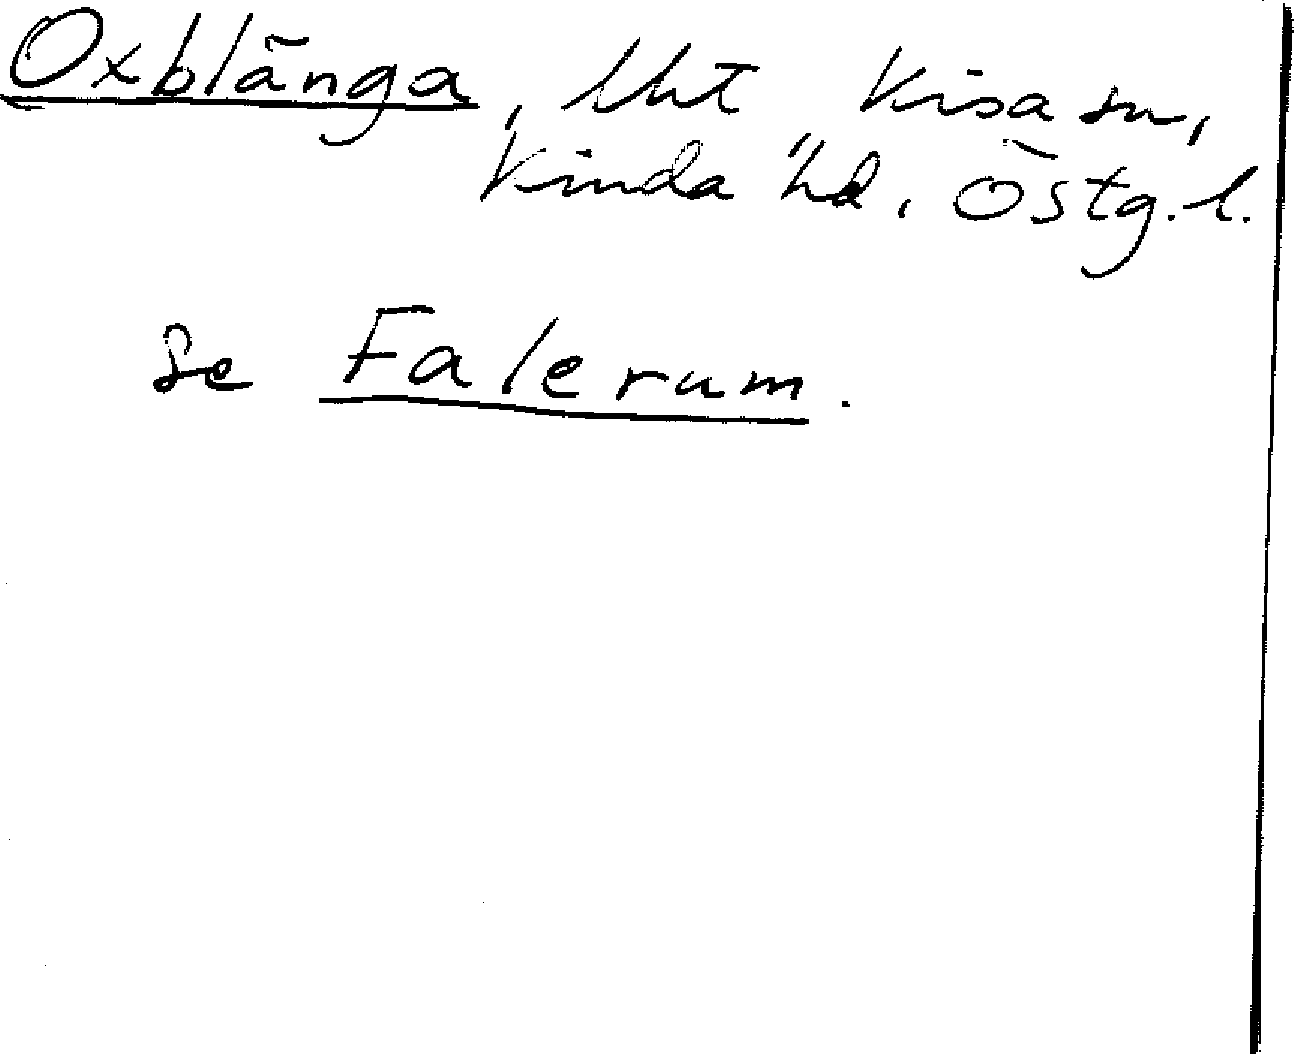 Oxblänga, Kisa sn,
Kinda hd, Östg. l.
se Falerum.